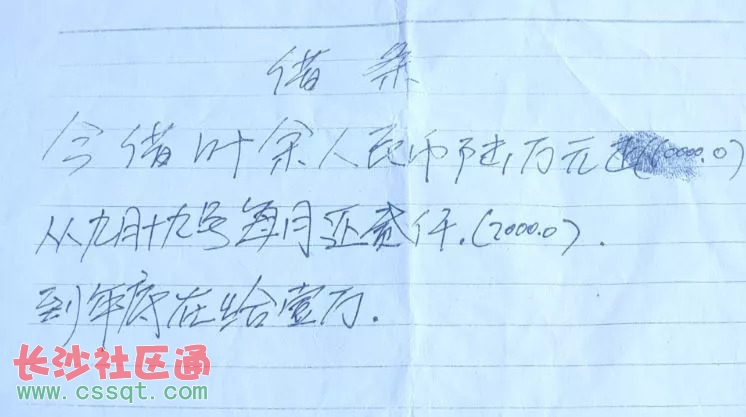 借 条
今借叶余人民币陆万元(60000.0)
从九月十九号每月还贰仟.(2000.0).
到年底在给壹万.
长沙社区通
www.cssqt.com